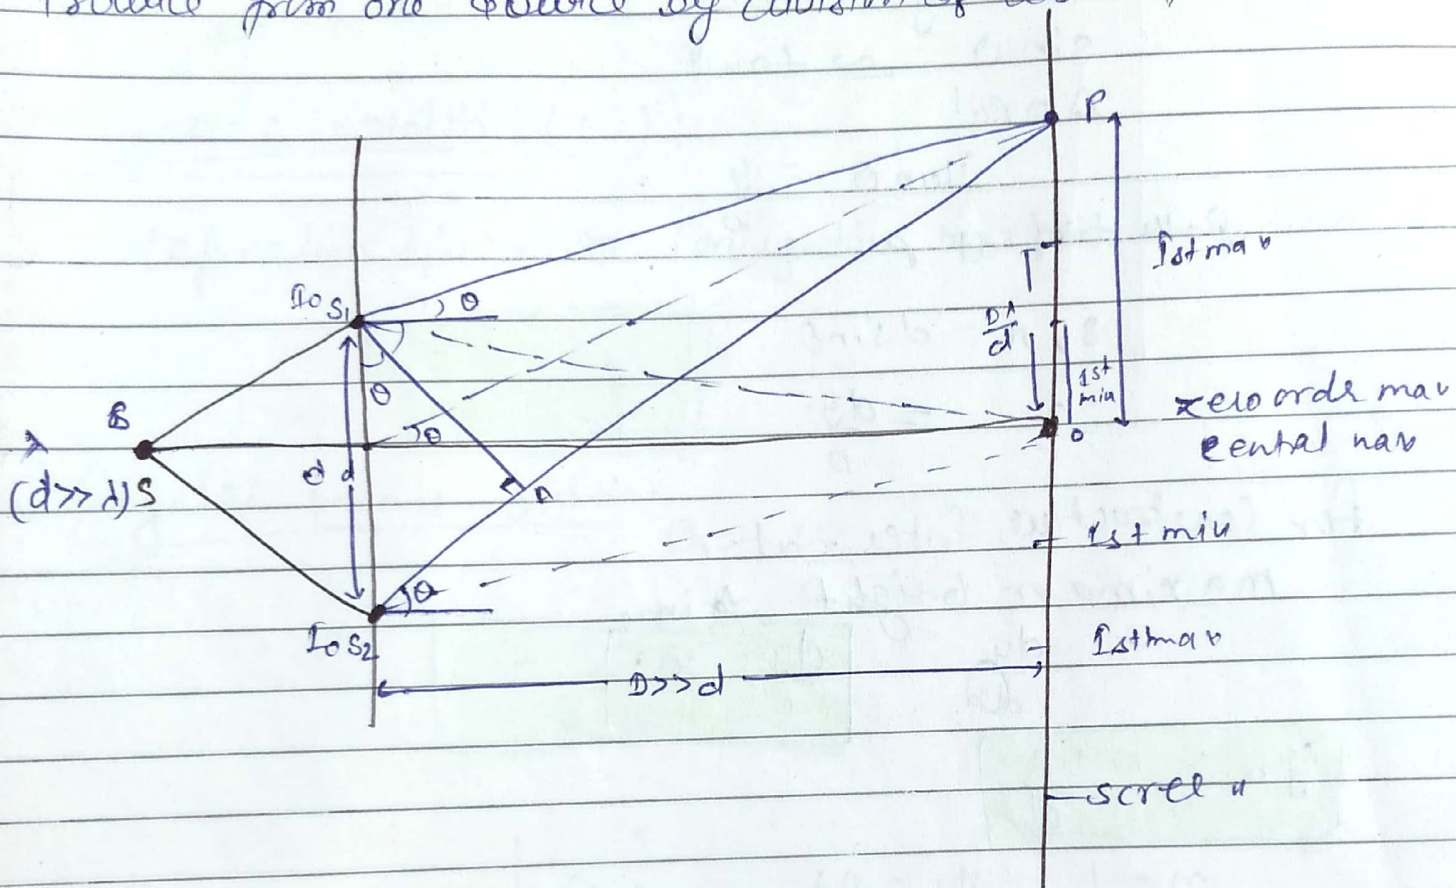 from one source by division of
P
1st max
I₀ S₁
θ
Dλ/d
1st
min
θ
zero orde max
S
θ
O
central max
λ
d
(d>>λ) S
A
1st min
θ
I₀ S₂
1st max
D>>d
screen